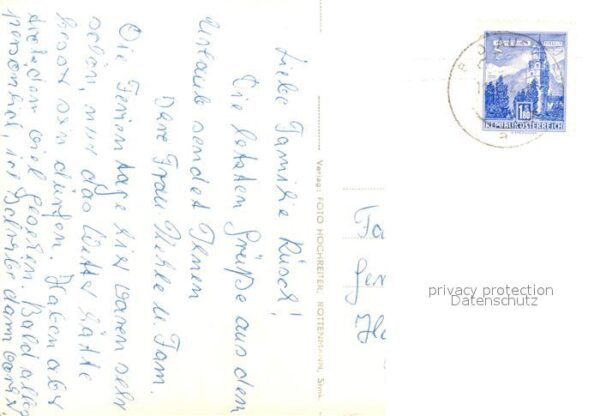 Liebe Familie Rusch!
Die letzten Grüße aus dem
Urlaub sendet Ihnen
Ihre Frau u. Fam.
Die Ferientage hier waren sehr
schön, nur das Wetter hätte
besser sein dürfen. Haben aber
trotzdem viel gesehen. Bald alles
persönlich, ich schreibe dann
Verlag: FOTO HOCHREITER, ROTTENMANN, Stmk.
1.80
REPUBLIK ÖSTERREICH
Fa
Ha
privacy protection
Datenschutz